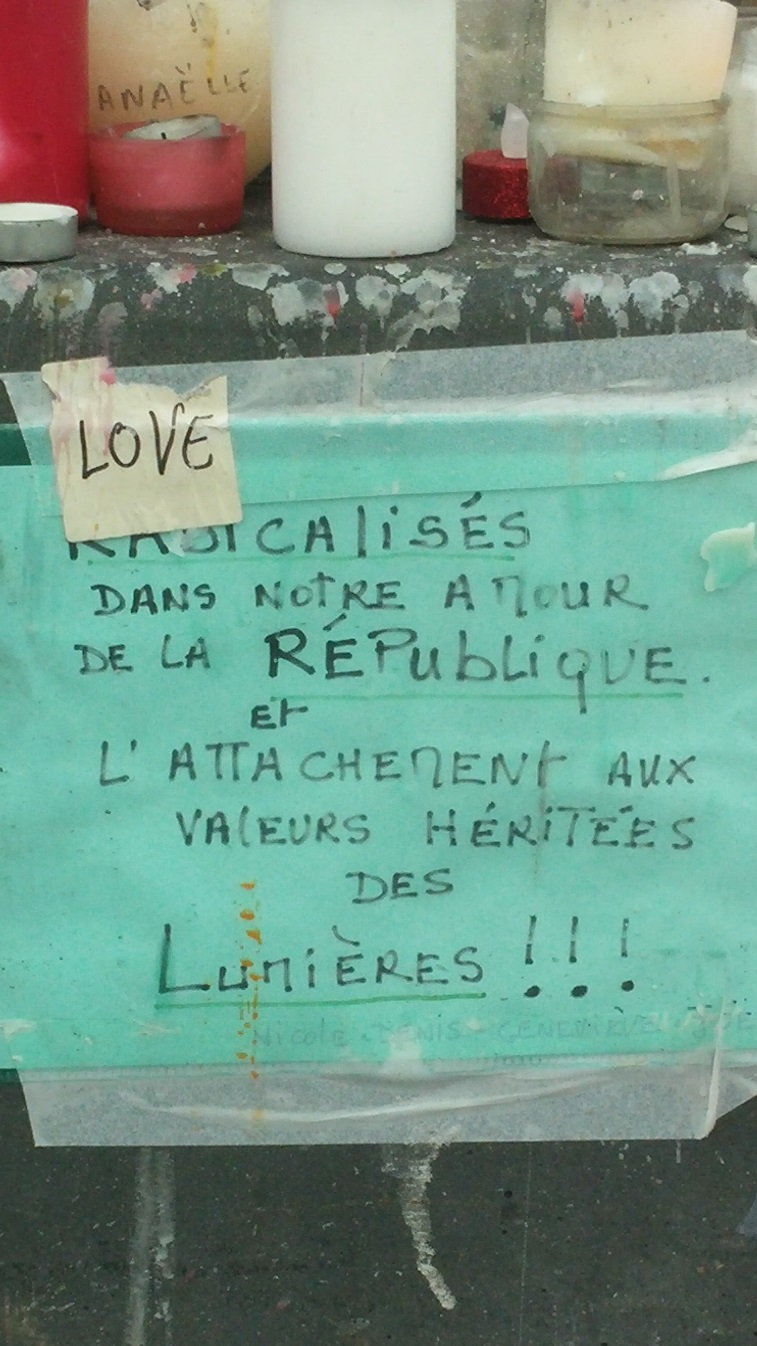 ANAËLLE
LOVE
RADICAlISÉS
DANS NOTRE AMOUR
DE LA RÉPublIQUE.
ET
L'ATTACHEMENT AUX
VAlEURS HÉRITÉES
DES
LumIÈRES !!!
Nicole . DENIS - GENEVIÈVE .